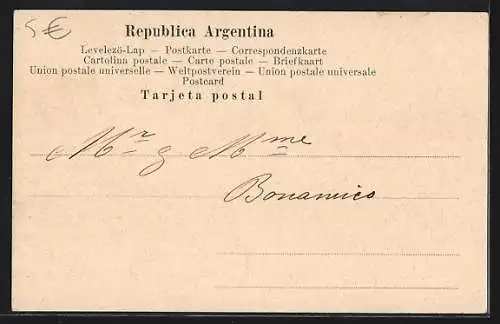 5€
Republica Argentina
Levelezö-Lap — Postkarte — Correspondenzkarte
Cartolina postale — Carte postale — Briefkaart
Union postale universelle — Weltpostverein — Union postale universale
Postcard
Tarjeta postal
Mr y Mme
Bonamico